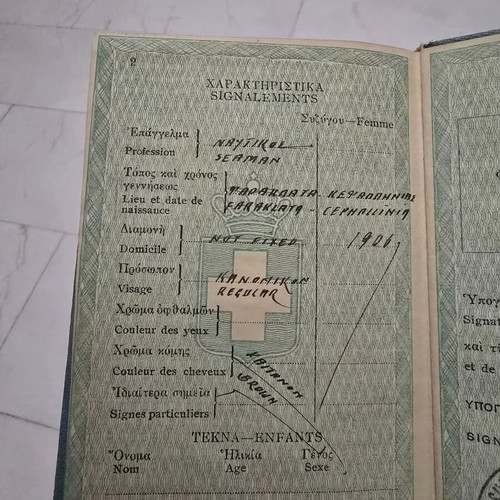 2
ΧΑΡΑΚΤΗΡΙΣΤΙΚΑ
SIGNALEMENTS
Συζύγου—Femme
Ἐπάγγελμα
ΝΑΥΤΙΚΟΣ
Profession
SEAMAN
Τόπος καὶ χρόνος
γεννήσεως
ΦΑΡΑΚΛΑΤΑ - ΚΕΦΑΛΛΗΝΙΑΣ
Lieu et date de
naissance
FARAKLATA - CEPHALLINIA
Διαμονὴ
1906
Domicile
NOT FIXED
Πρόσωπον
ΚΑΝΟΝΙΚΟΝ
Visage
REGULAR
Χρῶμα ὀφθαλμῶν
Couleur des yeux
Χρῶμα κόμης
ΚΑΣΤΑΝΟΝ
Couleur des cheveux
BROWN
Ἰδιαίτερα σημεῖα
Signes particuliers
ΤΕΚΝΑ—ENFANTS
Ὄνομα Ἡλικία Γένος
Nom Age Sexe
Ὑπογ
Signat
καὶ τ
et de
ΥΠΟΓ
SIGN